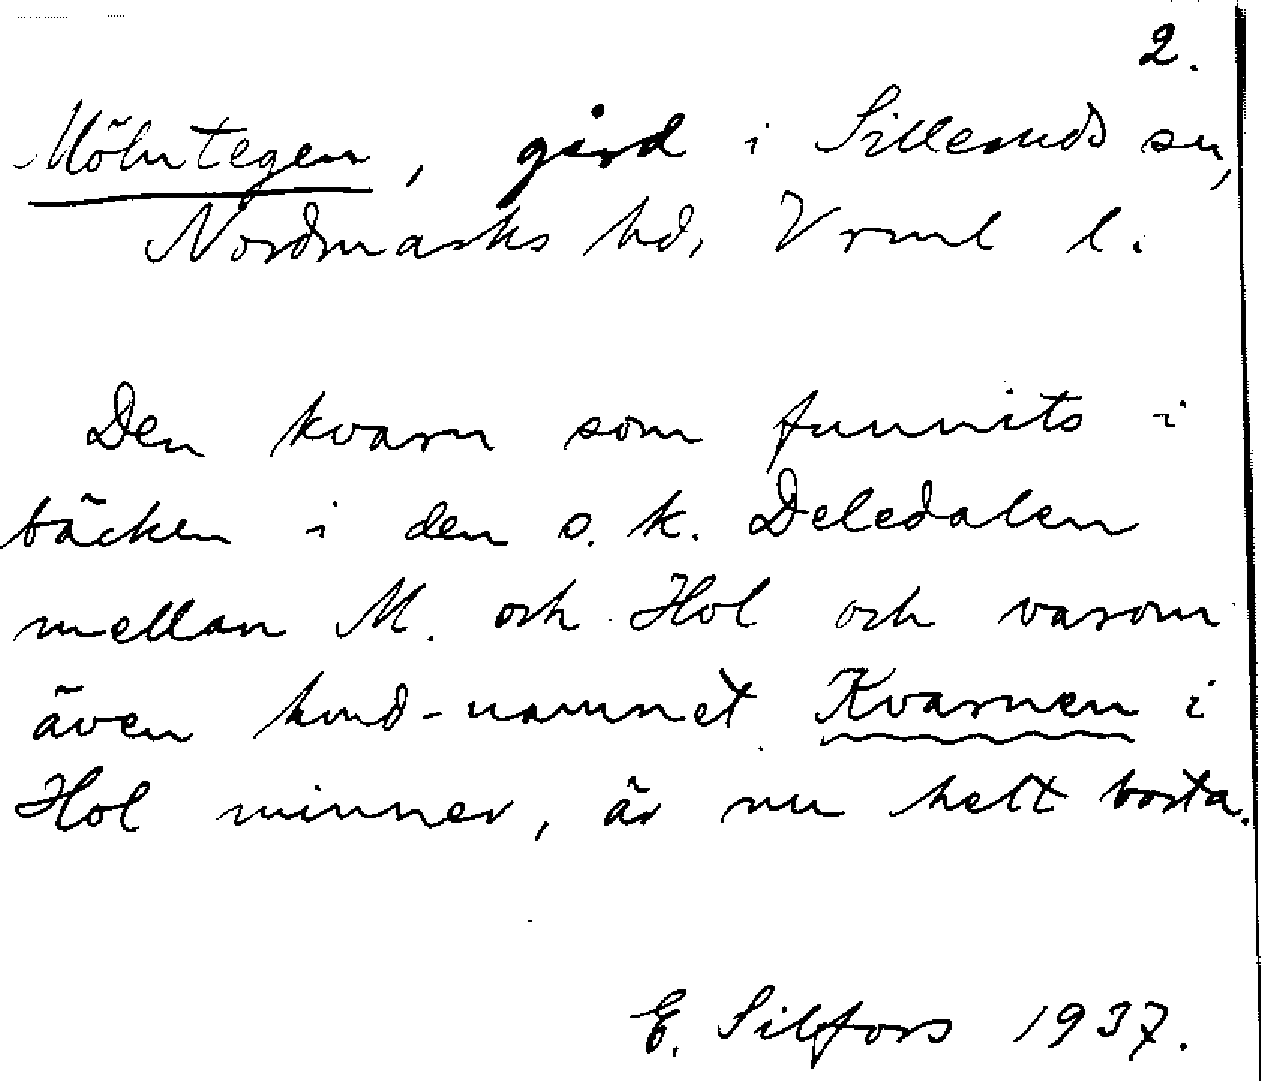 2.
Mölntegen, gård i Silleruds sn,
Nordmarks hd, Vrml l.
Den kvarn som funnits i
bäcken i den s. k. Deledalen
mellan M. och Hol och varom
även hmd-namnet Kvarnen i
Hol minner, är nu helt borta.
E. Silfors 1937.